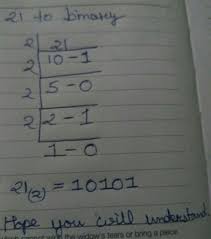 21 to binary
2 | 21
2 | 10 - 1
2 | 5 - 0
2 | 2 - 1
1 - 0
21(2) = 10101
Hope you will understand
widow's tears or bring a piece.